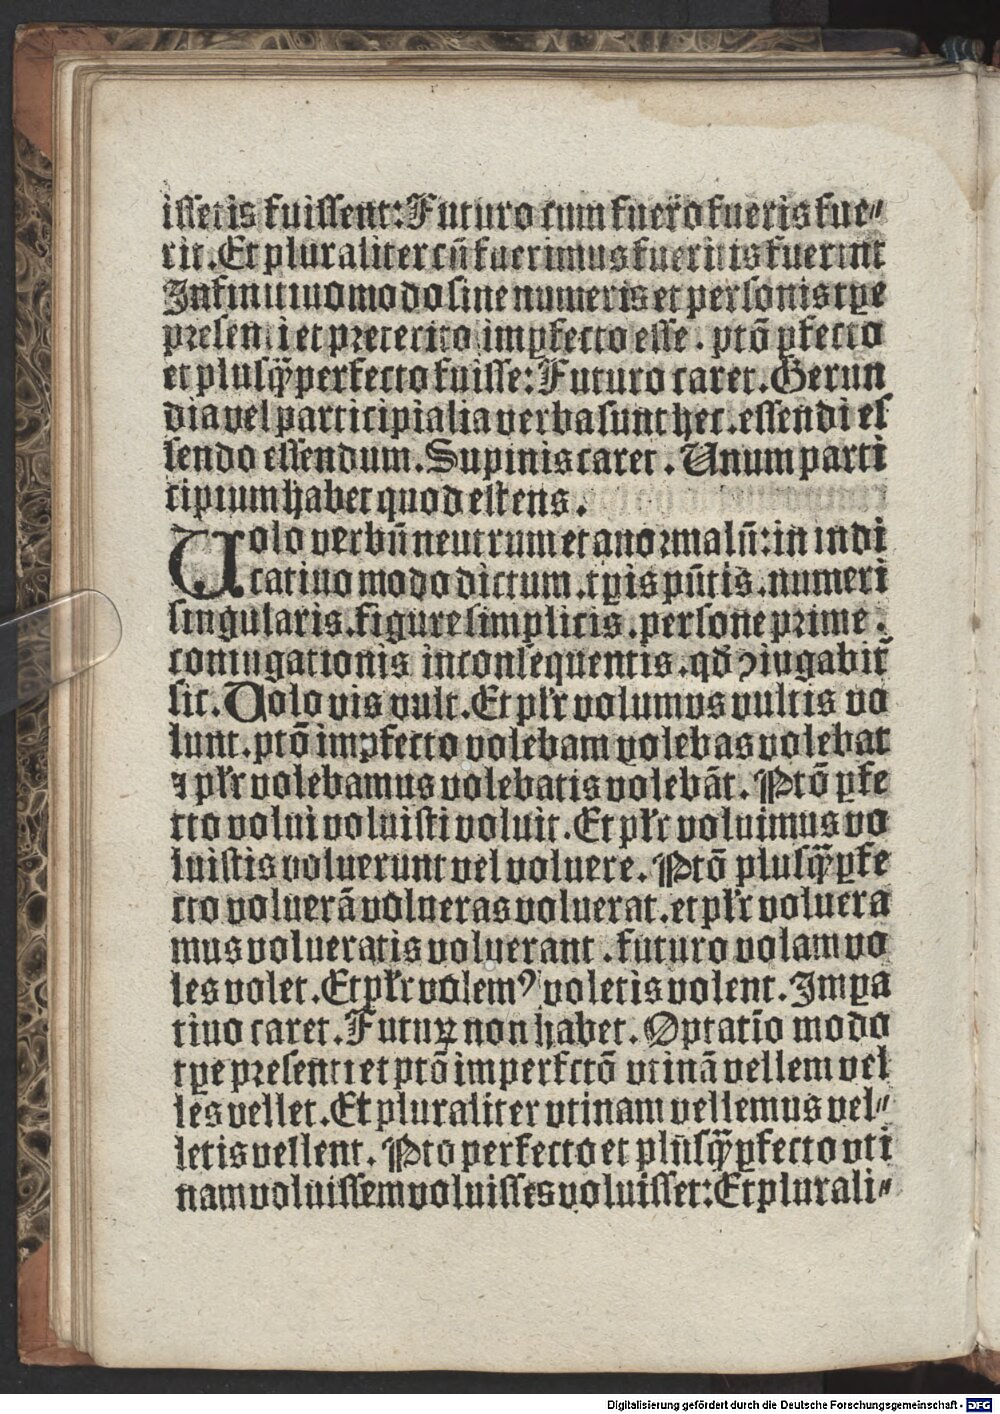 issetis fuissent: Futuro cum fuero fueris fue⸗
rit. Et pluraliter cū fuerimus fueritis fuerint
Infinitiuo modo sine numeris et personis tꝑe
presenti et preterito imꝑfecto esse. ptō ꝑfecto
et plusqꝫperfecto fuisse: Futuro caret. Gerun
dia vel participialia verba sunt hec. essendi es
sendo essendum. Supinis caret. Unum parti
cipium habet quod est ens.
Uolo verbū neutrum et anormalū: in indi
catiuo modo dictum. tꝑis pūtis. numeri
singularis. figure simplicis. persone prime.
coniugationis inconsequentis. qd ꝯiugabit̄
sic. Uolo vis vult. Et plr̄ volumus vultis vo
lunt. ptō impfecto volebam volebas volebat
⁊ plr̄ volebamus volebatis volebāt. Ptō ꝑfe
cto volui voluisti voluit. Et plr̄ voluimus vo
luistis voluerunt vel voluere. Ptō plusqꝫꝑfe
cto voluerā volueras voluerat. et plr̄ voluera
mus volueratis voluerant. futuro volam vo
les volet. Et plr̄ volemꝰ voletis volent. Imꝑa
tiuo caret. Futuꝝ non habet. Optatīo modo
tꝑe presenti et ptō imperfctō vtinā vellem vel
les vellet. Et pluraliter vtinam vellemus vel⸗
letis vellent. Pto perfecto et plūsqꝫꝑfecto vti
nam voluissem voluisses voluisset: Et plurali⸗
Digitalisierung gefördert durch die Deutsche Forschungsgemeinschaft - DFG